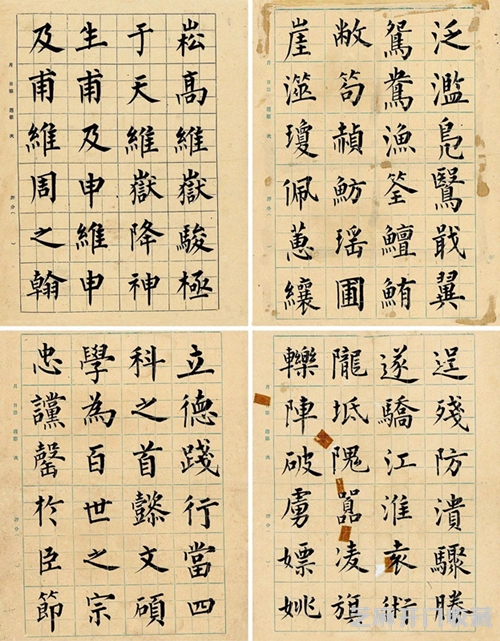 崧高維嶽駿極
于天維嶽降神
生甫及申維申
及甫維周之翰
泛濫鳧鷖戢翼
鴛鴦漁筌鱣鮪
敝笱赬魴瑶圃
崖澨瓊佩蕙纕
立德踐行當四
科之首懿文碩
學為百世之宗
忠讜罄於臣節
逞殘防潰驟勝
遂驕江淮袁術
隴坻隗囂凌旗
轢陣破虜嫖姚